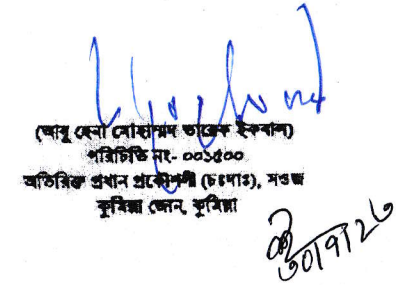 (আবু হেনা মোহাম্মদ তারেক ইকবাল)
পরিচিতি নং- ০০১৫০০
অতিরিক্ত প্রধান প্রকৌশলী (চঃদাঃ), সওজ
কুমিল্লা জোন, কুমিল্লা